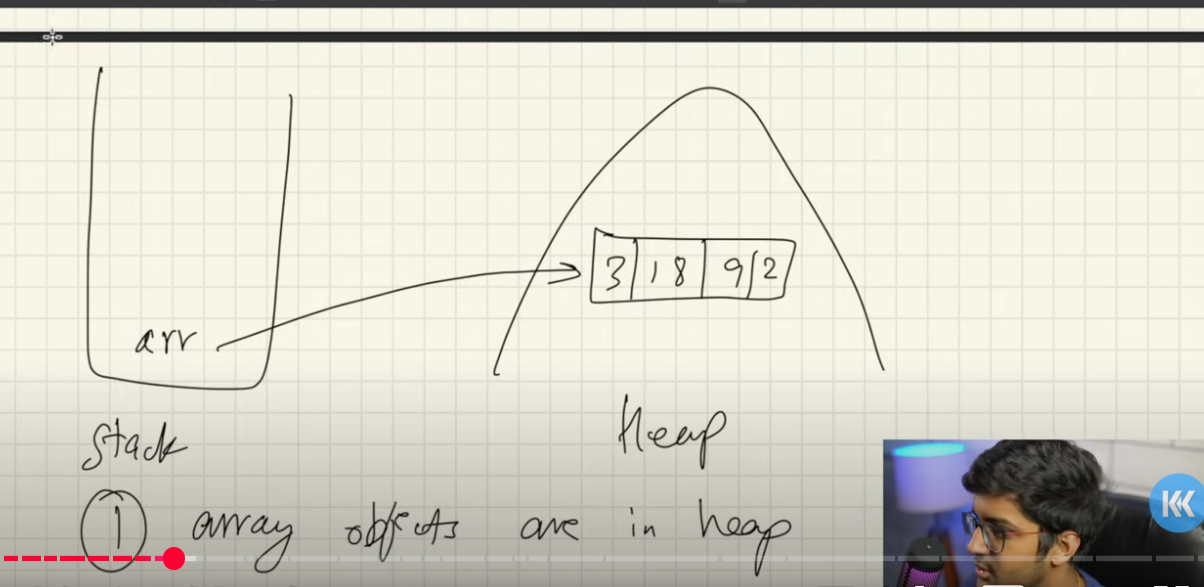 3 18 9 2
arr
Stack
Heap
1 array objects are in heap
KK